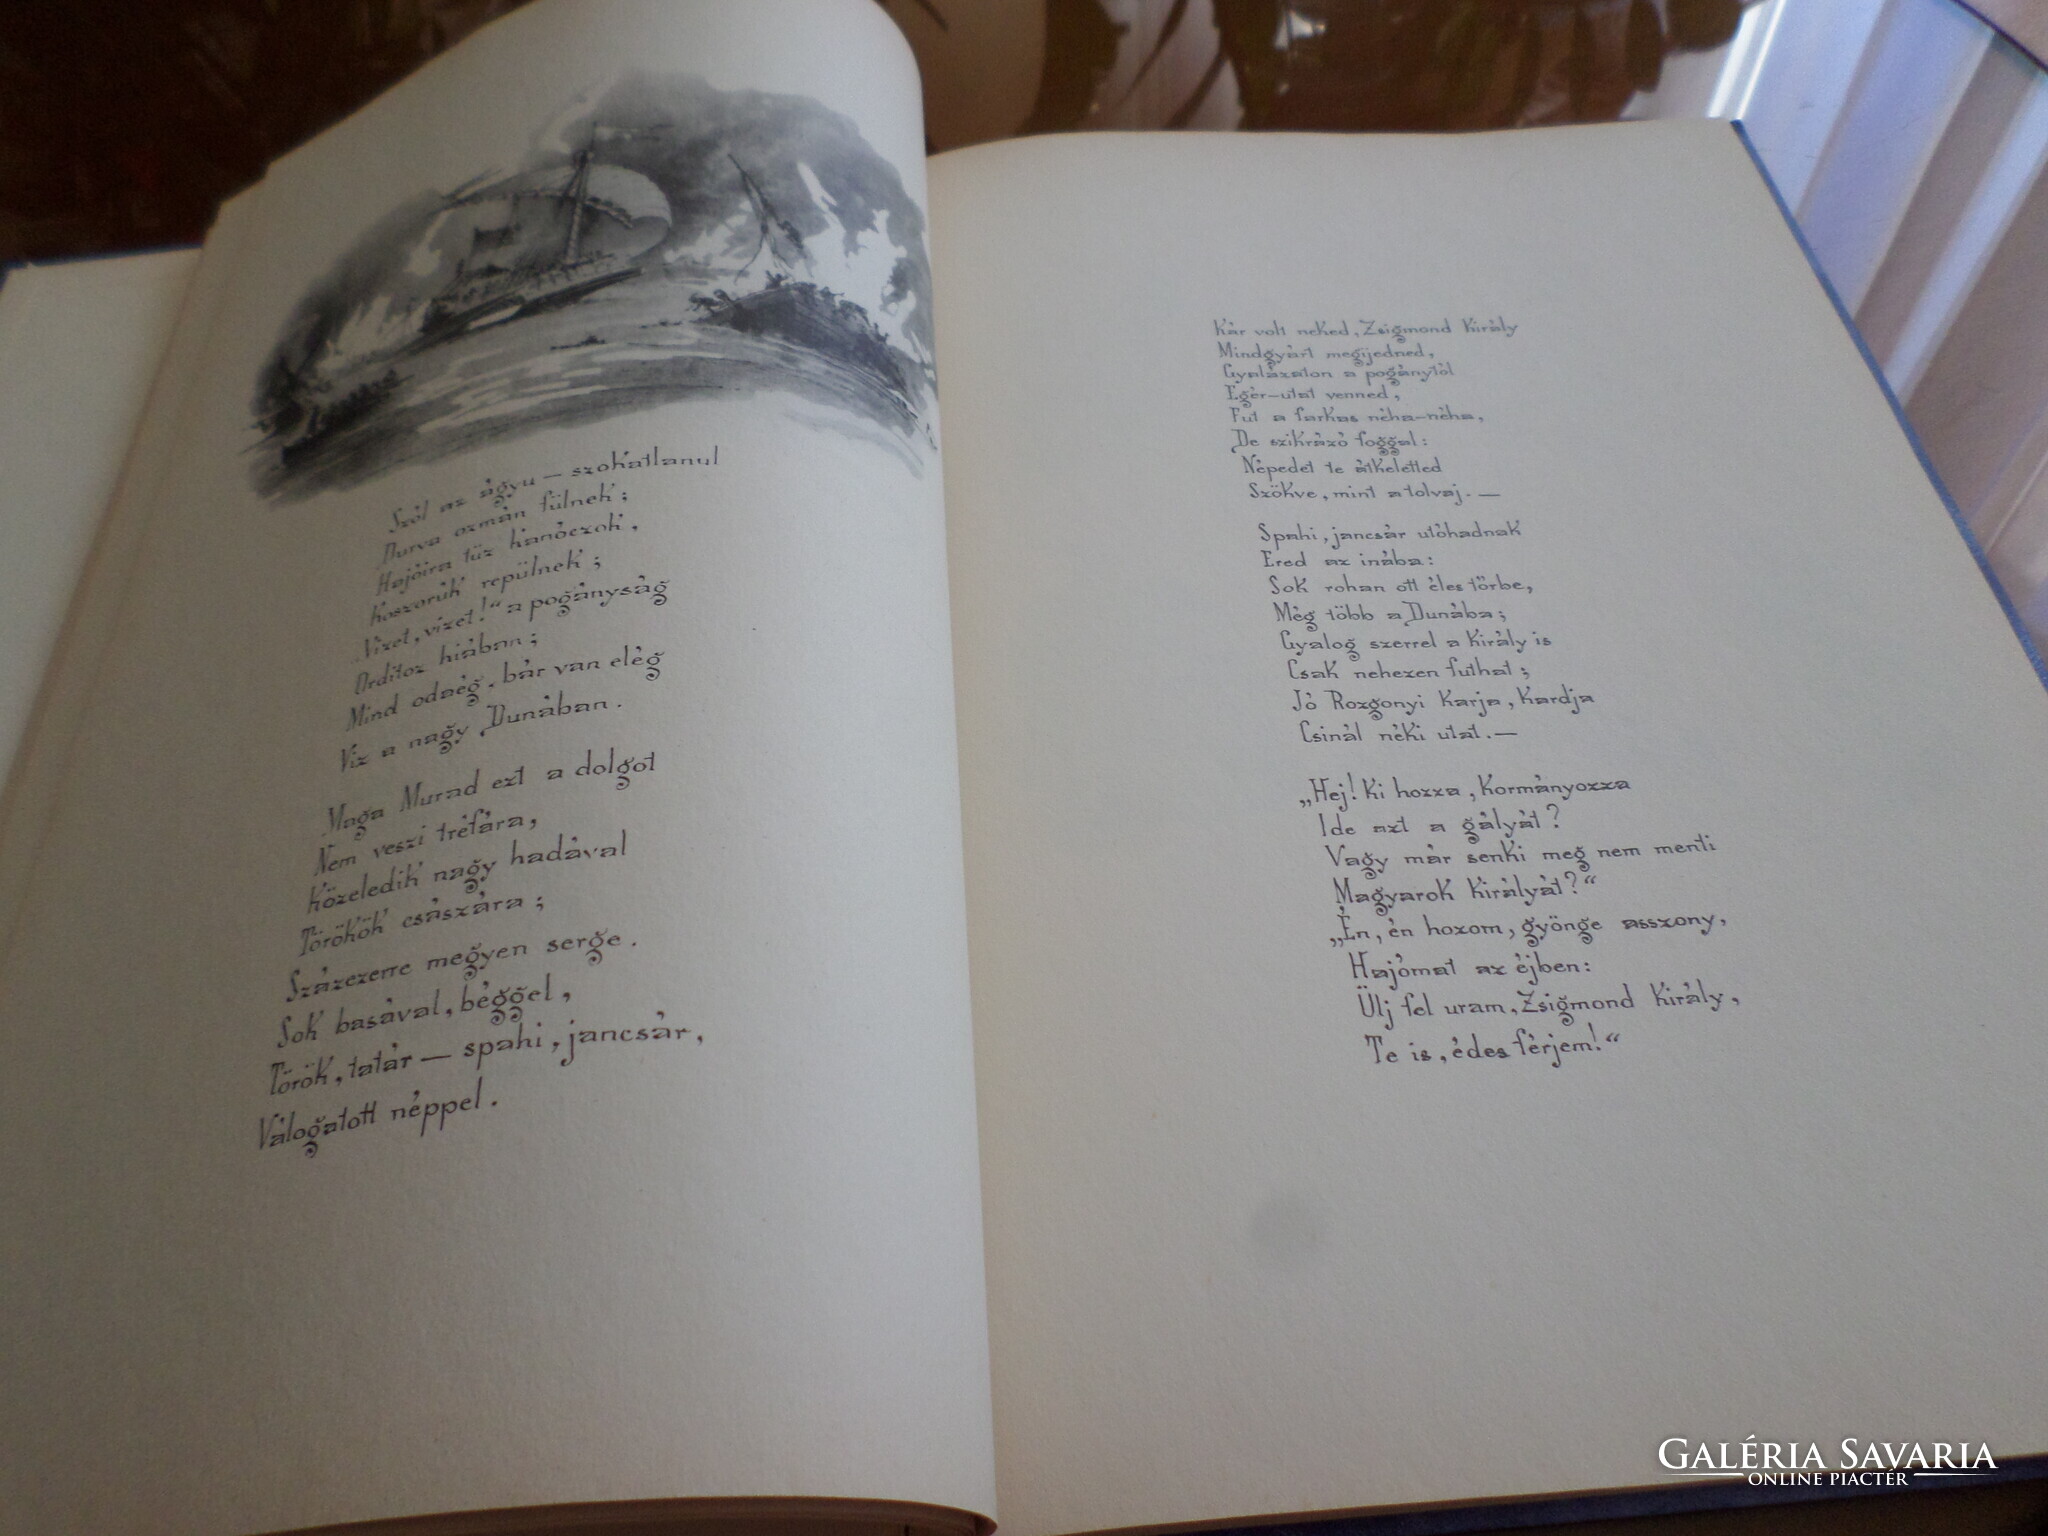 Szól az ágyu — szokatlanul
Durva ozmán fülnek;
Hajóira tüz kanóczok,
Koszorúk repülnek;
„Vizet, vizet!“ a pogányság
Orditoz hiában;
Mind odaég, bár van elég
Viz a nagy Dunában.
Maga Murad ezt a dolgot
Nem veszi tréfára,
Közeledik nagy hadával
Törökök császára;
Százezerre megyen serge.
Sok basával, béggel,
Török, tatár — spahi, jancsár,
Válogatott néppel.
Kár volt neked, Zsigmond király
Mindgyárt megijedned,
Gyalázaton a pogánytól
Egér-utat venned,
Fut a farkas néha-néha,
De szikrázó foggal:
Népedet te átkeletted
Szökve, mint a tolvaj. —
Spahi, jancsár utóhadnak
Ered az inába:
Sok rohan ott éles tőrbe,
Még több a Dunába;
Gyalog szerrel a király is
Csak nehezen futhat;
Jó Rozgonyi karja, kardja
Csinál néki utat. —
„Hej! ki hozza, kormányozza
Ide azt a gályát?
Vagy már senki meg nem menti
Magyarok királyát?“
„Én, én hozom, gyönge asszony,
Hajómat az éjben:
Ülj fel uram, Zsigmond király,
Te is, édes férjem!“
GALÉRIA SAVARIA
ONLINE PIACTÉR